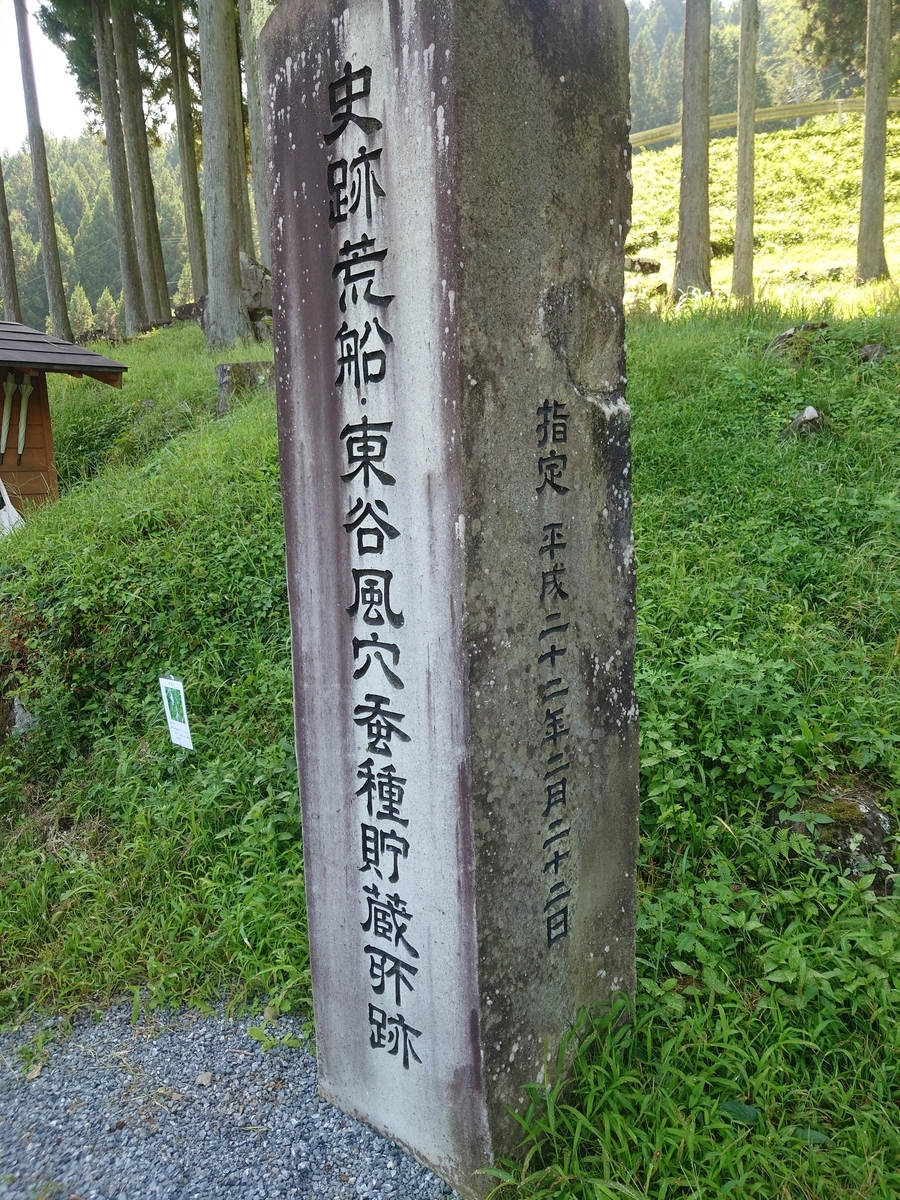 史跡荒船・東谷風穴蚕種貯蔵所跡
指定 平成二十二年二月二十二日